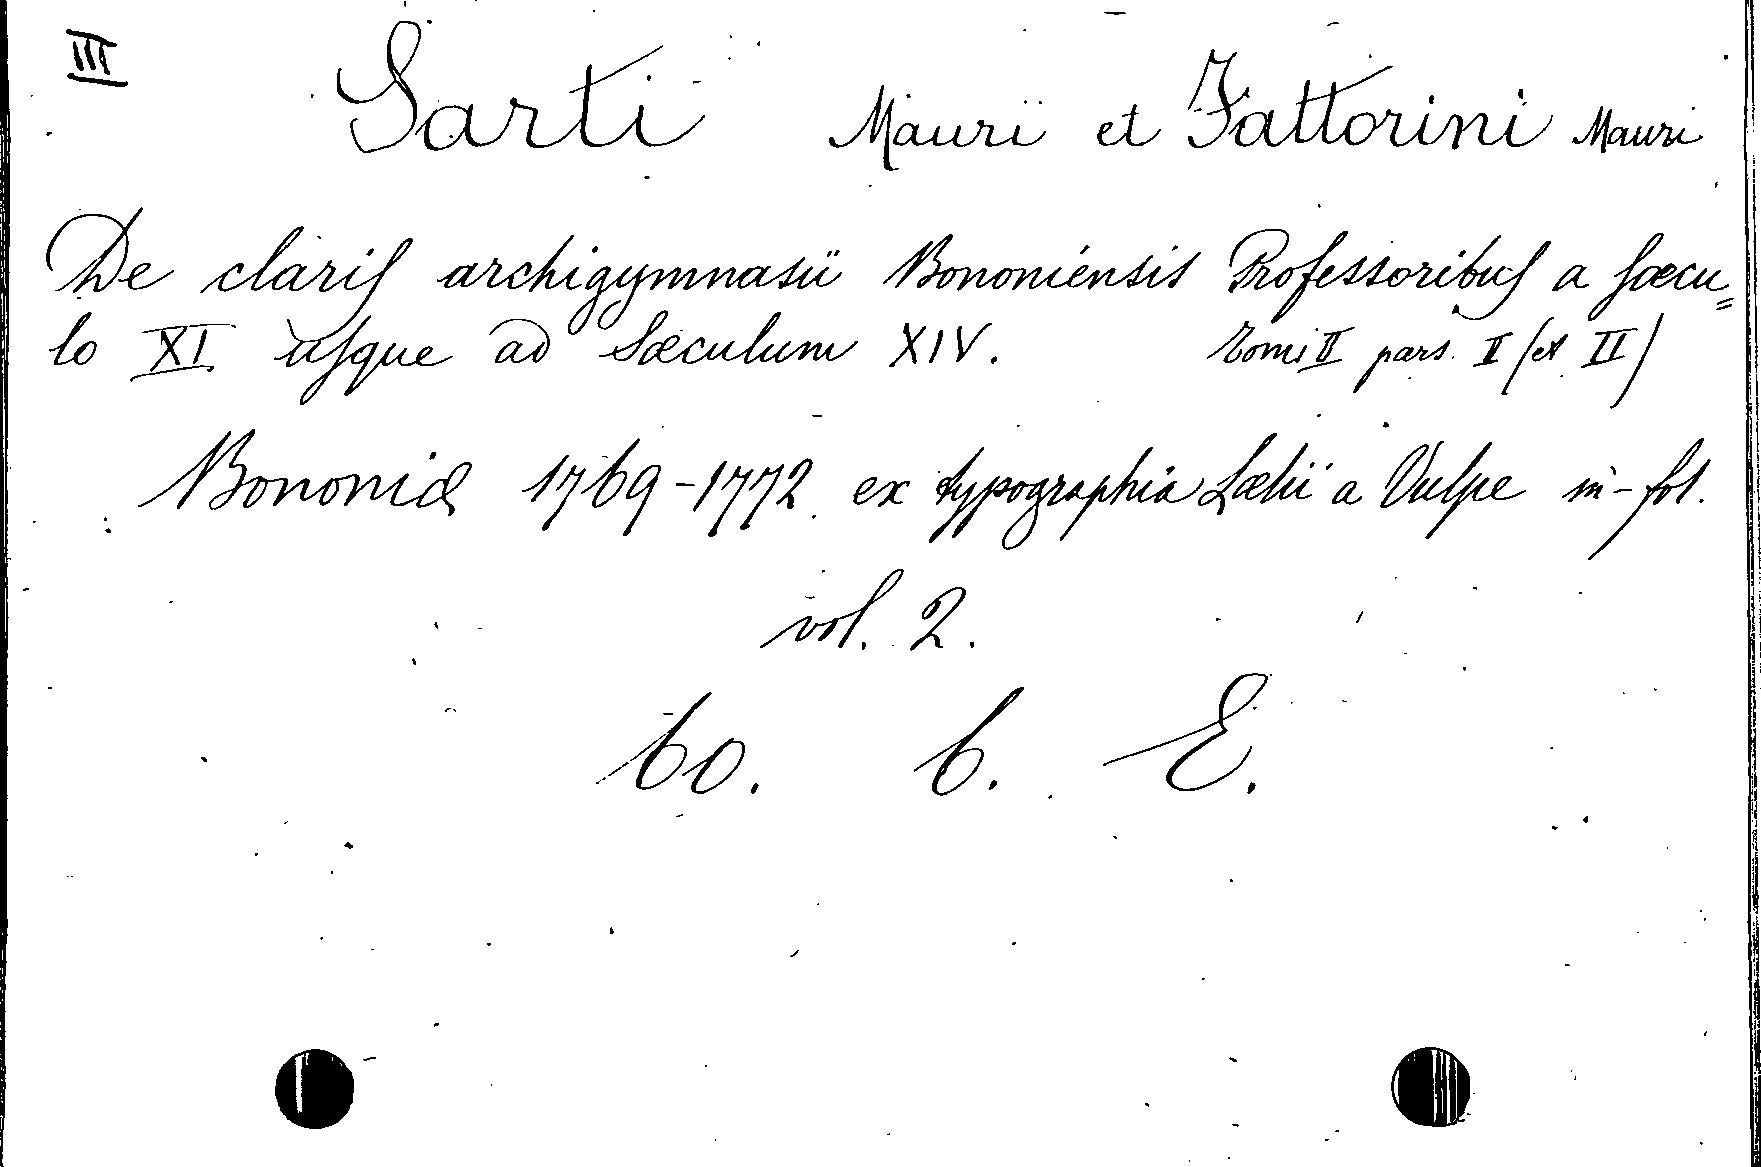 III
Sarti Mauri et Fattorini Mauri
De claris archigymnasii Bononiensis Professoribus a sæcu=
lo XI usque ad sæculum XIV. Tomi II pars. I (et II)
Bononiæ 1769-1772 ex typographia Lælii a Vulpe in-fol.
vol. 2.
60. 6. E.